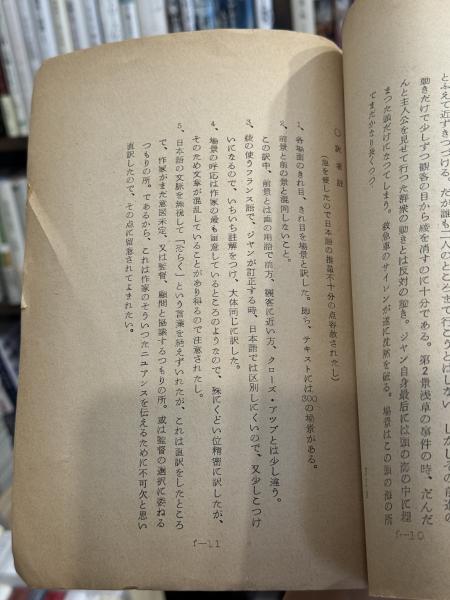 とふえて近ずきつづける。だが誰も一人のところまで行こうとはしない
動きだけで少しずつ観客の目から綾を消すのに十分である。第2景浅草の事件の時、だんだ
んと主人公を見せて行った群衆の動きとは反対の動き。ジャン自身最后には頭の海の中に埋
まった頭だけになってしまう。救急車のサイレンが遂に沈黙を破る。場景はこの頭の海の所
でまだかなり長くつづ
f—10
○ 訳者註
(急を要したので日本語の推敲不十分の点容赦されたし)
1、各場面のきれ目、きれ目を場景と訳した。即ち、テキストには300の場景がある。
2、前景と前の景と混同しないこと。
この訳中、前景とは画の用語で前方、観客に近い方、クローズ・アップとは少し違う。
3、綾の使うフランス語で、ジャンが訂正する時、日本語では区別しにくいので、又少しこつけ
いになるので、いちいち註解をつけ、大体同じに訳した。
4、場景の呼応は作家の最も留意しているところのようなので、殊にくどい位精密に訳したが、
そのため文章が混乱していることがあり得るので注意されたし。
5、日本語の文脈を無視して「恐らく」という言葉を絶えずいれたが、これは直訳をしたところ
で、作家がまだ意図未定、又は監督、顧問と協議するつもりの所。或は監督の選択に委ねる
つもりの所。であるから、これは作家のそういったニュアンスを伝えるために不可欠と思い
直訳したので、その点に留意されてよまれたい。
f—11